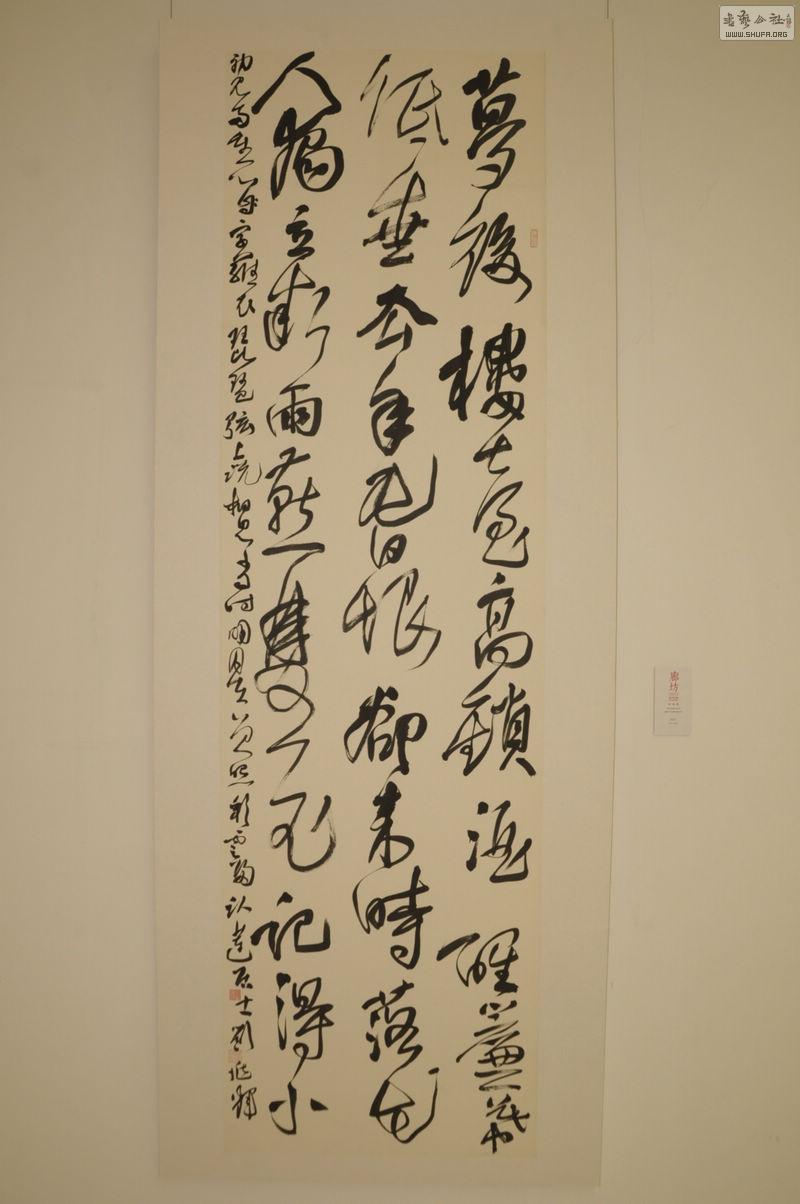 夢後樓臺高鎖酒醒簾幕
低垂去年春恨卻來時落花
人獨立微雨燕雙飛記得小
初見兩重心字羅衣琵琶弦上說相思當時明月在曾照彩雲歸 居士劉
廊坊
書藝公社
WWW.SHUFA.ORG